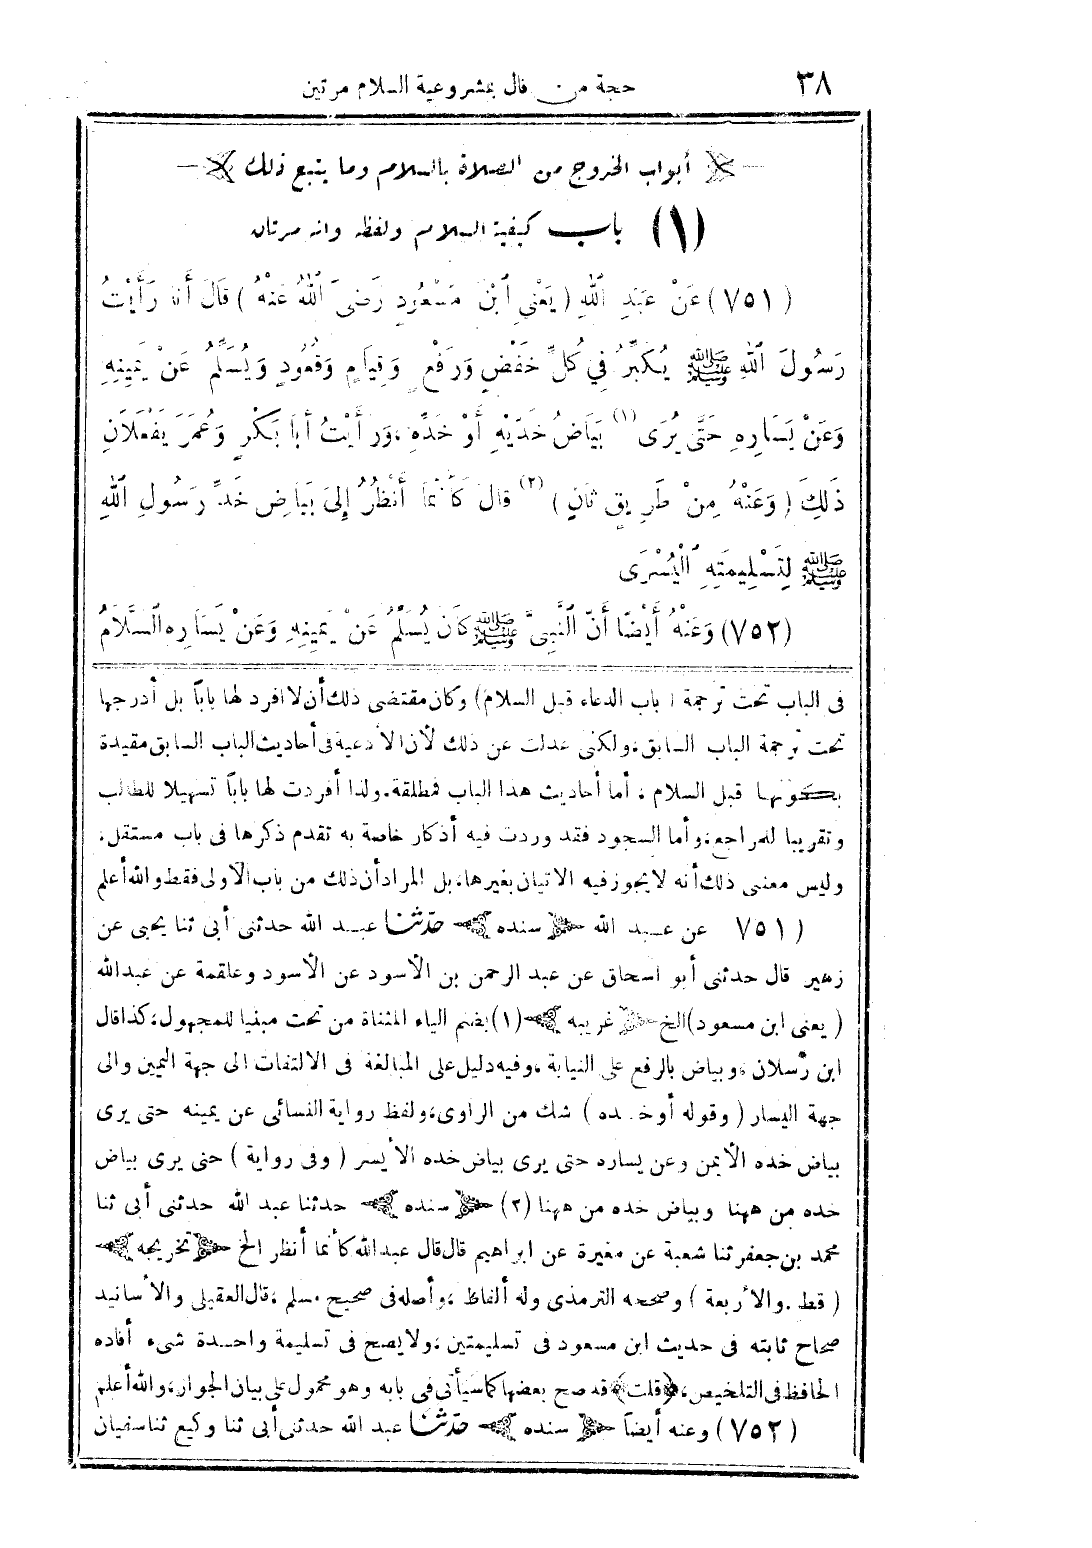 ٣٨ حجة من قال بمشروعية السلام مرتين
أبواب الخروج من الصلاة بالسلام وما يتبع ذلك
(١) باب كيفية السلام ولفظه وانه مرتان
(٧٥١) عَنْ عَبْدِ اللهِ (يَعْنِي ابْنَ مَسْعُودٍ رَضِيَ اللهُ عَنْهُ) قَالَ أَنَا رَأَيْتُ
رَسُولَ اللهِ ﷺ يُكَبِّرُ فِي كُلِّ خَفْضٍ وَرَفْعٍ وَقِيَامٍ وَقُعُودٍ وَيُسَلِّمُ عَنْ يَمِينِهِ
وَعَنْ يَسَارِهِ حَتَّى يُرَى (١) بَيَاضُ خَدَّيْهِ أَوْ خَدِّهِ، وَرَأَيْتُ أَبَا بَكْرٍ وَعُمَرَ يَفْعَلَانِ
ذَلِكَ (وَعَنْهُ مِنْ طَرِيقٍ ثَانٍ) (٢) قَالَ كَأَنَّمَا أَنْظُرُ إِلَى بَيَاضِ خَدِّ رَسُولِ اللهِ
ﷺ لِتَسْلِيمَتِهِ الْيُسْرَى
(٧٥٢) وَعَنْهُ أَيْضًا أَنَّ النَّبِيَّ ﷺ كَانَ يُسَلِّمُ عَنْ يَمِينِهِ وَعَنْ يَسَارِهِ السَّلَامُ
فى الباب تحت ترجمة (باب الدعاء قبل السلام) وكان مقتضى ذلك أن لا افرد لها باباً بل أدرجها
تحت ترجمة الباب السابق، ولكنى عدلت عن ذلك لأن الأدعية فى أحاديث الباب السابق مقيدة
بكونها قبل السلام، أما أحاديث هذا الباب فمطلقة. ولذا أفردت لها باباً تسهيلا للطالب
وتقريبا للمراجع، وأما السجود فقد وردت فيه أذكار خاصة به تقدم ذكرها فى باب مستقل،
وليس معنى ذلك أنه لا يجوز فيه الاتيان بغيرها، بل المراد أن ذلك من باب الأولى فقط والله أعلم
(٧٥١) عن عبد الله ﴿سنده﴾ حدّثنا عبد الله حدثنى أبى ثنا يحيى عن
زهير قال حدثنى أبو اسحاق عن عبد الرحمن بن الأسود عن الأسود وعلقمة عن عبد الله
(يعنى ابن مسعود) الخ ﴿غريبه﴾ (١) بضم الياء المثناة من تحت مبنيا للمجهول، كذا قال
ابن رسلان، وبياض بالرفع على النيابة، وفيه دليل على المبالغة فى الالتفات الى جهة اليمين والى
جهة اليسار (وقوله أو خده) شك من الراوى، ولفظ رواية النسائى عن يمينه حتى يرى
بياض خده الأيمن وعن يساره حتى يرى بياض خده الأيسر (وفى رواية) حتى يرى بياض
خده من ههنا وبياض خده من ههنا (٢) ﴿سنده﴾ حدثنا عبد الله حدثنى أبى ثنا
محمد بن جعفر ثنا شعبة عن مغيرة عن ابراهيم قال قال عبد الله كأنما أنظر الخ ﴿تخريجه﴾
(قط. والأربعة) وصححه الترمذى وله ألفاظ، وأصله فى صحيح مسلم، قال العقيلى والأسانيد
صحاح ثابته فى حديث ابن مسعود فى تسليمتين، ولا يصح فى تسليمة واحدة شىء أفاده
الحافظ فى التلخيص، ﴿قلت﴾ قد صح بعضها كما سيأتى فى بابه وهو محمول على بيان الجواز، والله أعلم
(٧٥٢) وعنه أيضاً ﴿سنده﴾ حدّثنا عبد الله حدثنى أبى ثنا وكيع ثنا سفيان